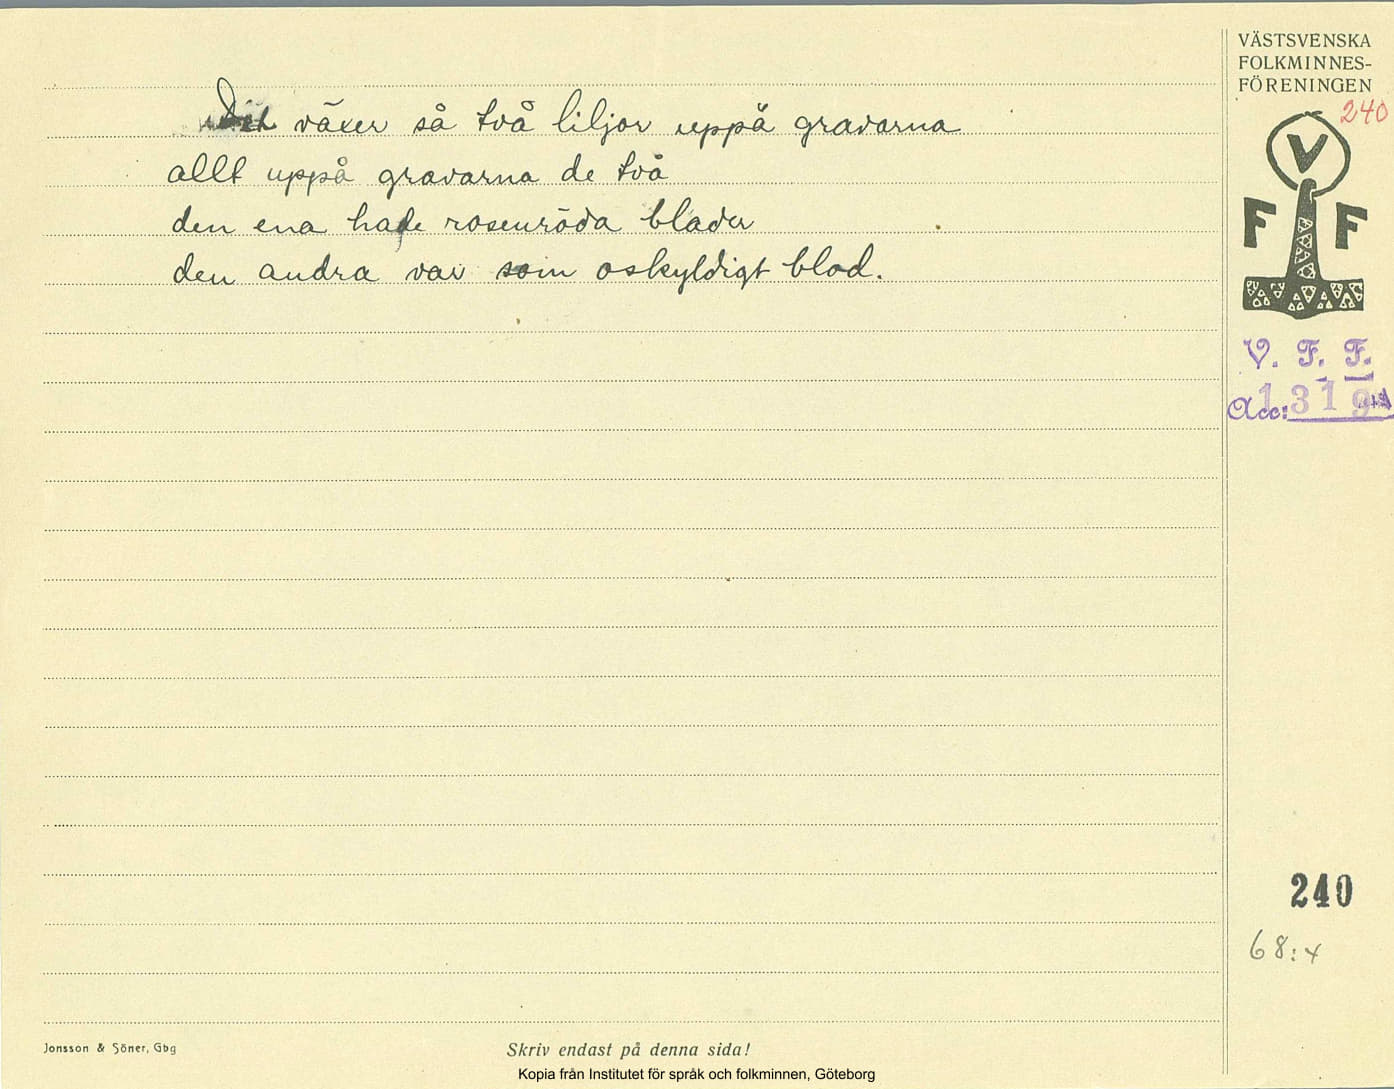 VÄSTSVENSKA
FOLKMINNES-
FÖRENINGEN
240
V
F F
Det växer så två liljor uppå gravarna
allt uppå gravarna de två
den ena hade rosenröda blader
den andra var som oskyldigt blod.
V. F. F.
Acc: 1319
240
68:4
Jonsson & Söner, Gbg
Skriv endast på denna sida!
Kopia från Institutet för språk och folkminnen, Göteborg